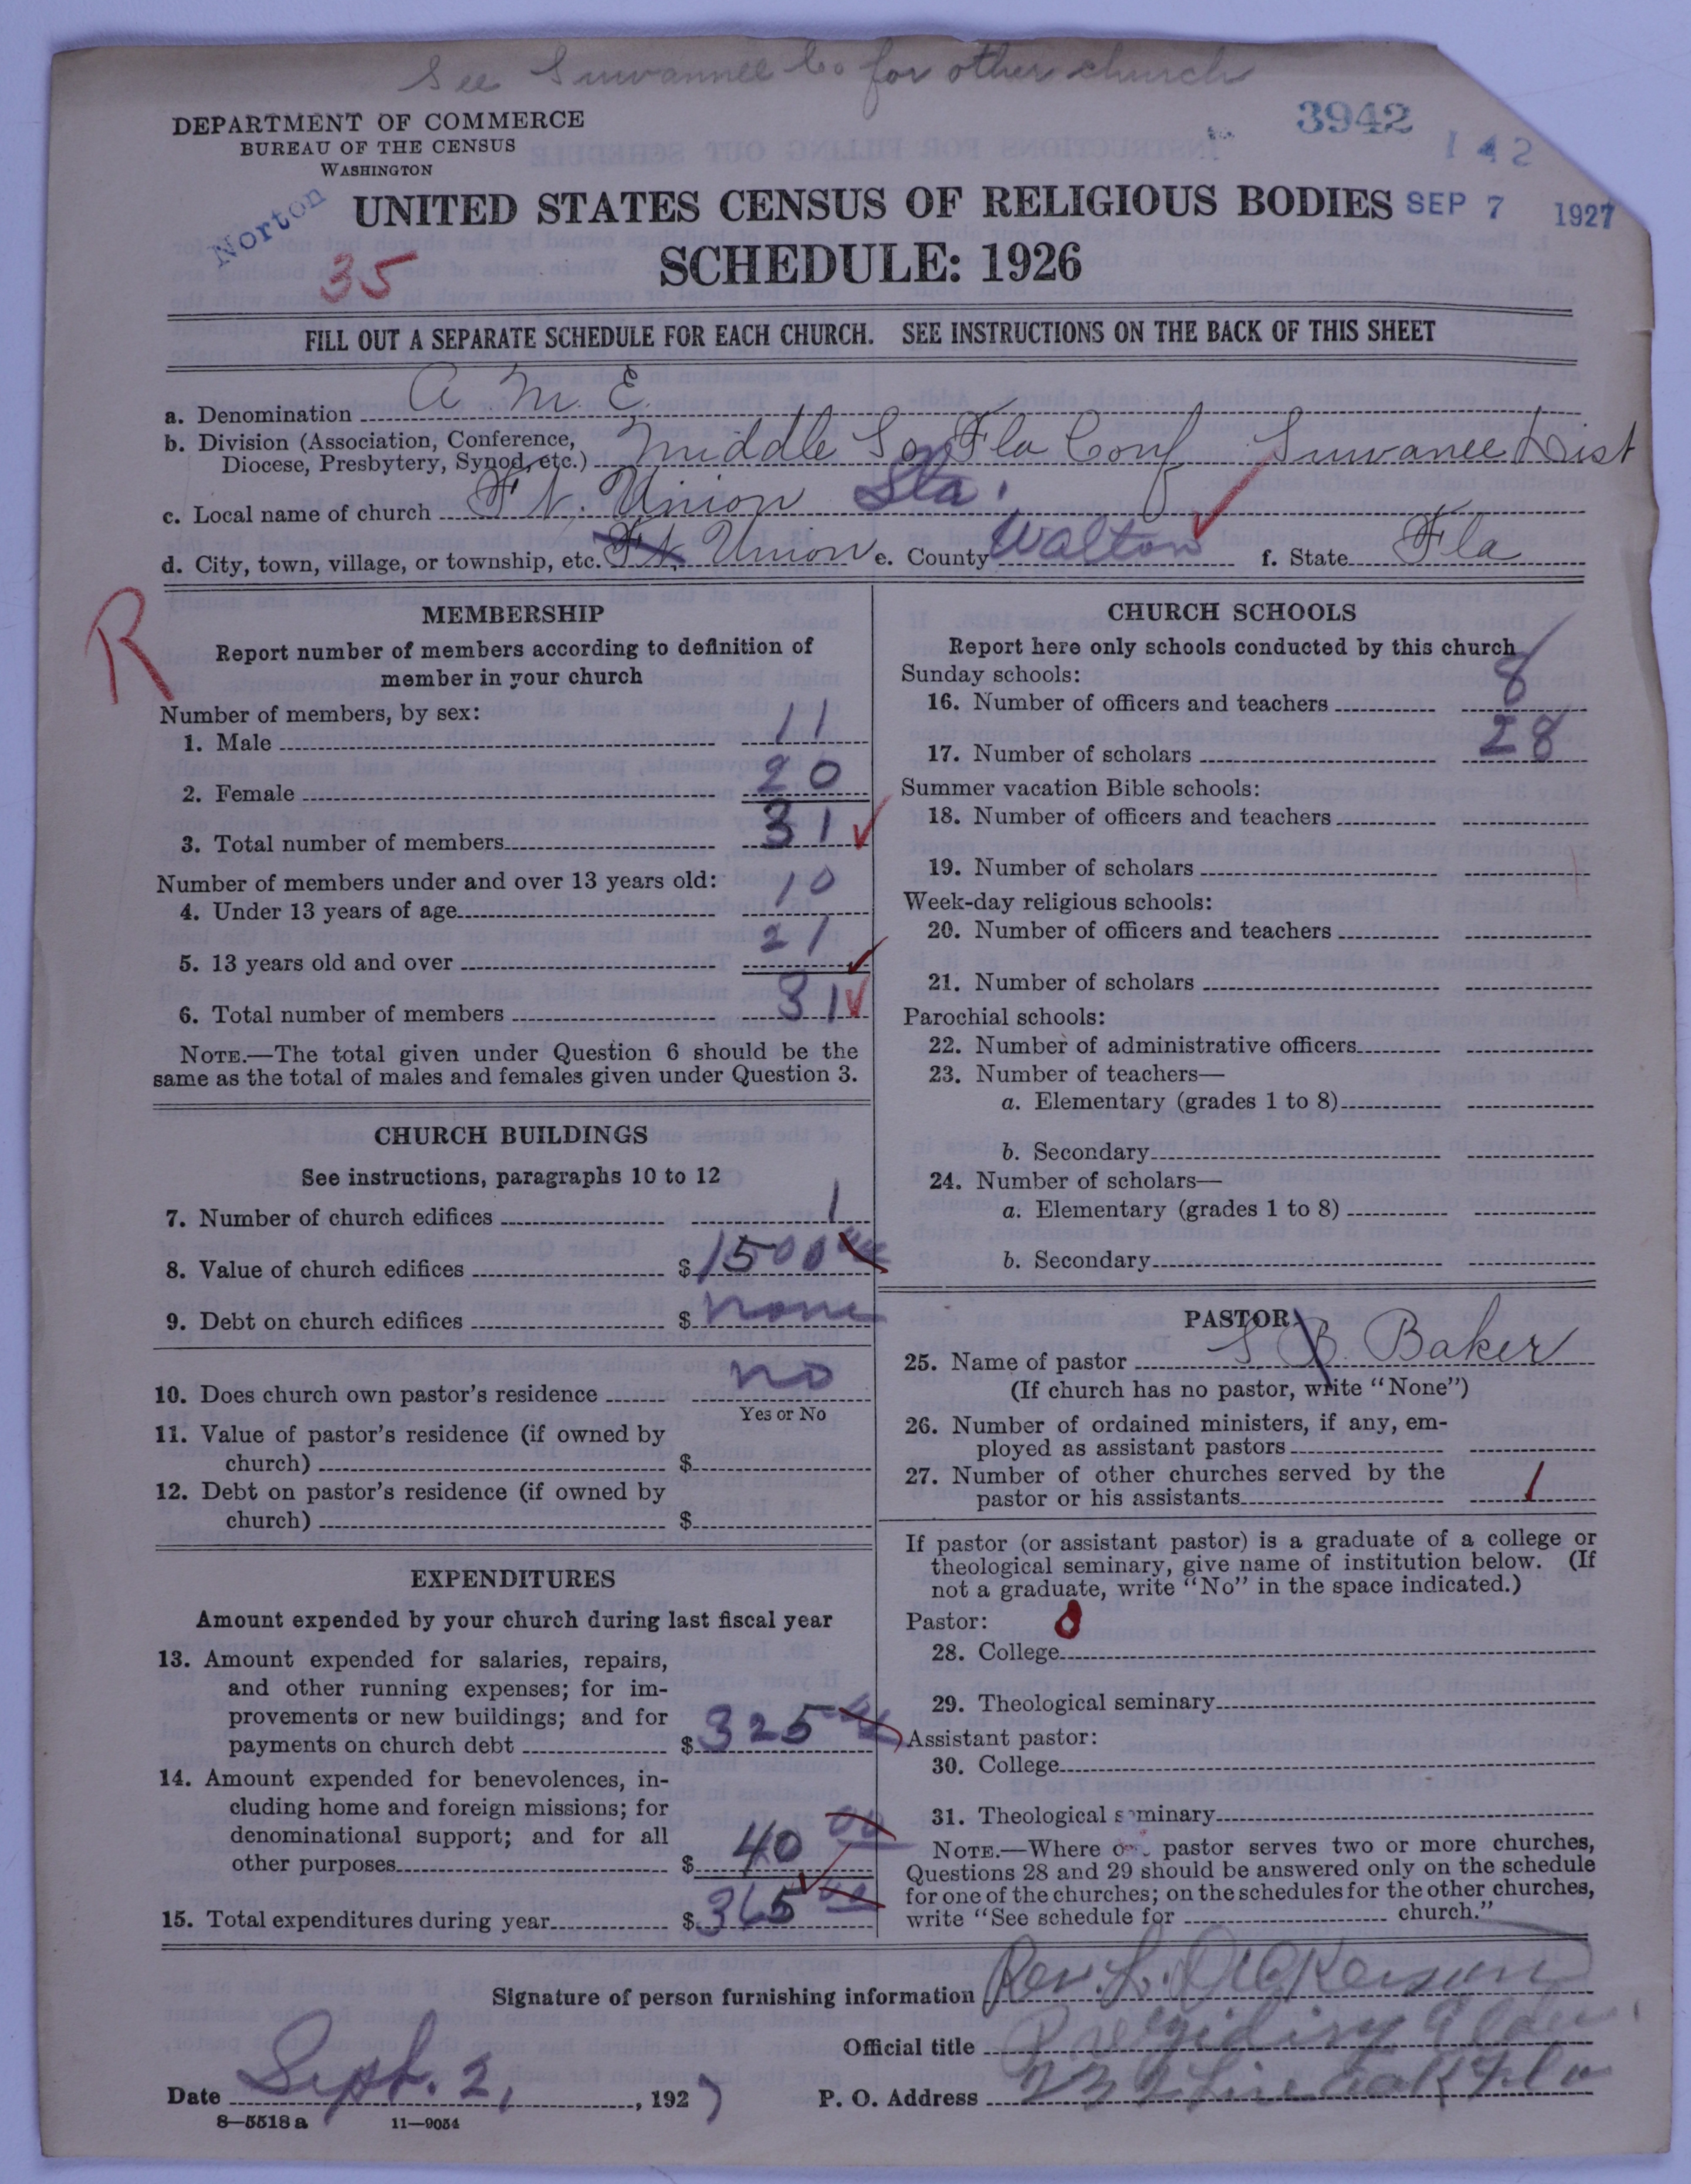 See Suwannee Co for other church
DEPARTMENT OF COMMERCE
BUREAU OF THE CENSUS
WASHINGTON
3942
142
Norton
UNITED STATES CENSUS OF RELIGIOUS BODIES
SEP 7 1927
35
SCHEDULE: 1926
FILL OUT A SEPARATE SCHEDULE FOR EACH CHURCH. SEE INSTRUCTIONS ON THE BACK OF THIS SHEET
a. Denomination A M. E.
b. Division (Association, Conference, Diocese, Presbytery, Synod, etc.) Middle So Fla Conf Suwanee Dist
c. Local name of church Ft. Union Sta.
d. City, town, village, or township, etc. Ft. Union e. County Walton f. State Fla
R
MEMBERSHIP
Report number of members according to definition of
member in your church
Number of members, by sex:
1. Male 11
2. Female 20
3. Total number of members 31
Number of members under and over 13 years old:
4. Under 13 years of age 10
5. 13 years old and over 21
6. Total number of members 31
NOTE.—The total given under Question 6 should be the
same as the total of males and females given under Question 3.
CHURCH BUILDINGS
See instructions, paragraphs 10 to 12
7. Number of church edifices 1
8. Value of church edifices $ 1500 00
9. Debt on church edifices $ none
10. Does church own pastor's residence no
Yes or No
11. Value of pastor's residence (if owned by
church) $
12. Debt on pastor's residence (if owned by
church) $
EXPENDITURES
Amount expended by your church during last fiscal year
13. Amount expended for salaries, repairs,
and other running expenses; for im-
provements or new buildings; and for
payments on church debt $ 325 00
14. Amount expended for benevolences, in-
cluding home and foreign missions; for
denominational support; and for all
other purposes $ 40 00
15. Total expenditures during year $ 365 00
CHURCH SCHOOLS
Report here only schools conducted by this church
Sunday schools:
16. Number of officers and teachers 8
17. Number of scholars 28
Summer vacation Bible schools:
18. Number of officers and teachers
19. Number of scholars
Week-day religious schools:
20. Number of officers and teachers
21. Number of scholars
Parochial schools:
22. Number of administrative officers
23. Number of teachers—
a. Elementary (grades 1 to 8)
b. Secondary
24. Number of scholars—
a. Elementary (grades 1 to 8)
b. Secondary
PASTOR
25. Name of pastor S B. Baker
(If church has no pastor, write "None")
26. Number of ordained ministers, if any, em-
ployed as assistant pastors
27. Number of other churches served by the
pastor or his assistants 1
If pastor (or assistant pastor) is a graduate of a college or
theological seminary, give name of institution below. (If
not a graduate, write "No" in the space indicated.)
Pastor: 0
28. College
29. Theological seminary
Assistant pastor:
30. College
31. Theological seminary
NOTE.—Where one pastor serves two or more churches,
Questions 28 and 29 should be answered only on the schedule
for one of the churches; on the schedules for the other churches,
write "See schedule for church."
Signature of person furnishing information Rev. L.
Official title Presiding Elder
Date Sept. 2, 1927 P. O. Address Live Oak Fla
8—5518 a 11—9054